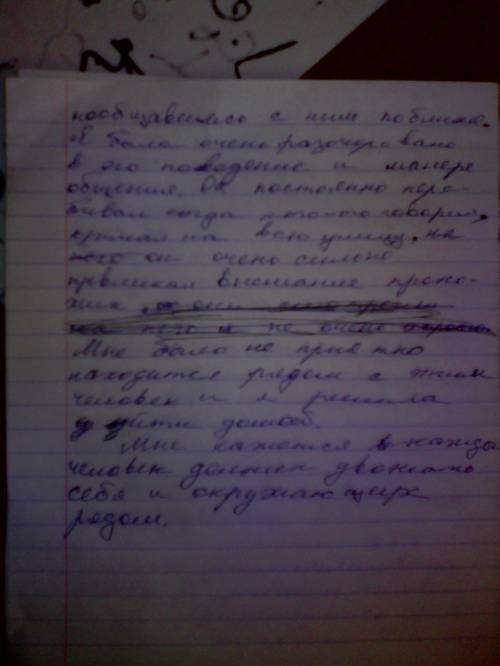 пообщавшись с ним поближе.
Я была очень разочеровано
в его поведение и манере
общения. Он постоянно пере-
бивал когда кто-то говорил,
кричал на всю улицу, на
него он очень сильно
превлекал внимание прохо-
жих
на него и не очень хорошо
Мне было не приятно
находится рядом с этим
человек и я решила
уйти домой.
Мне кажется кажды
человек должен уважать
себя и окружающих
рядом.